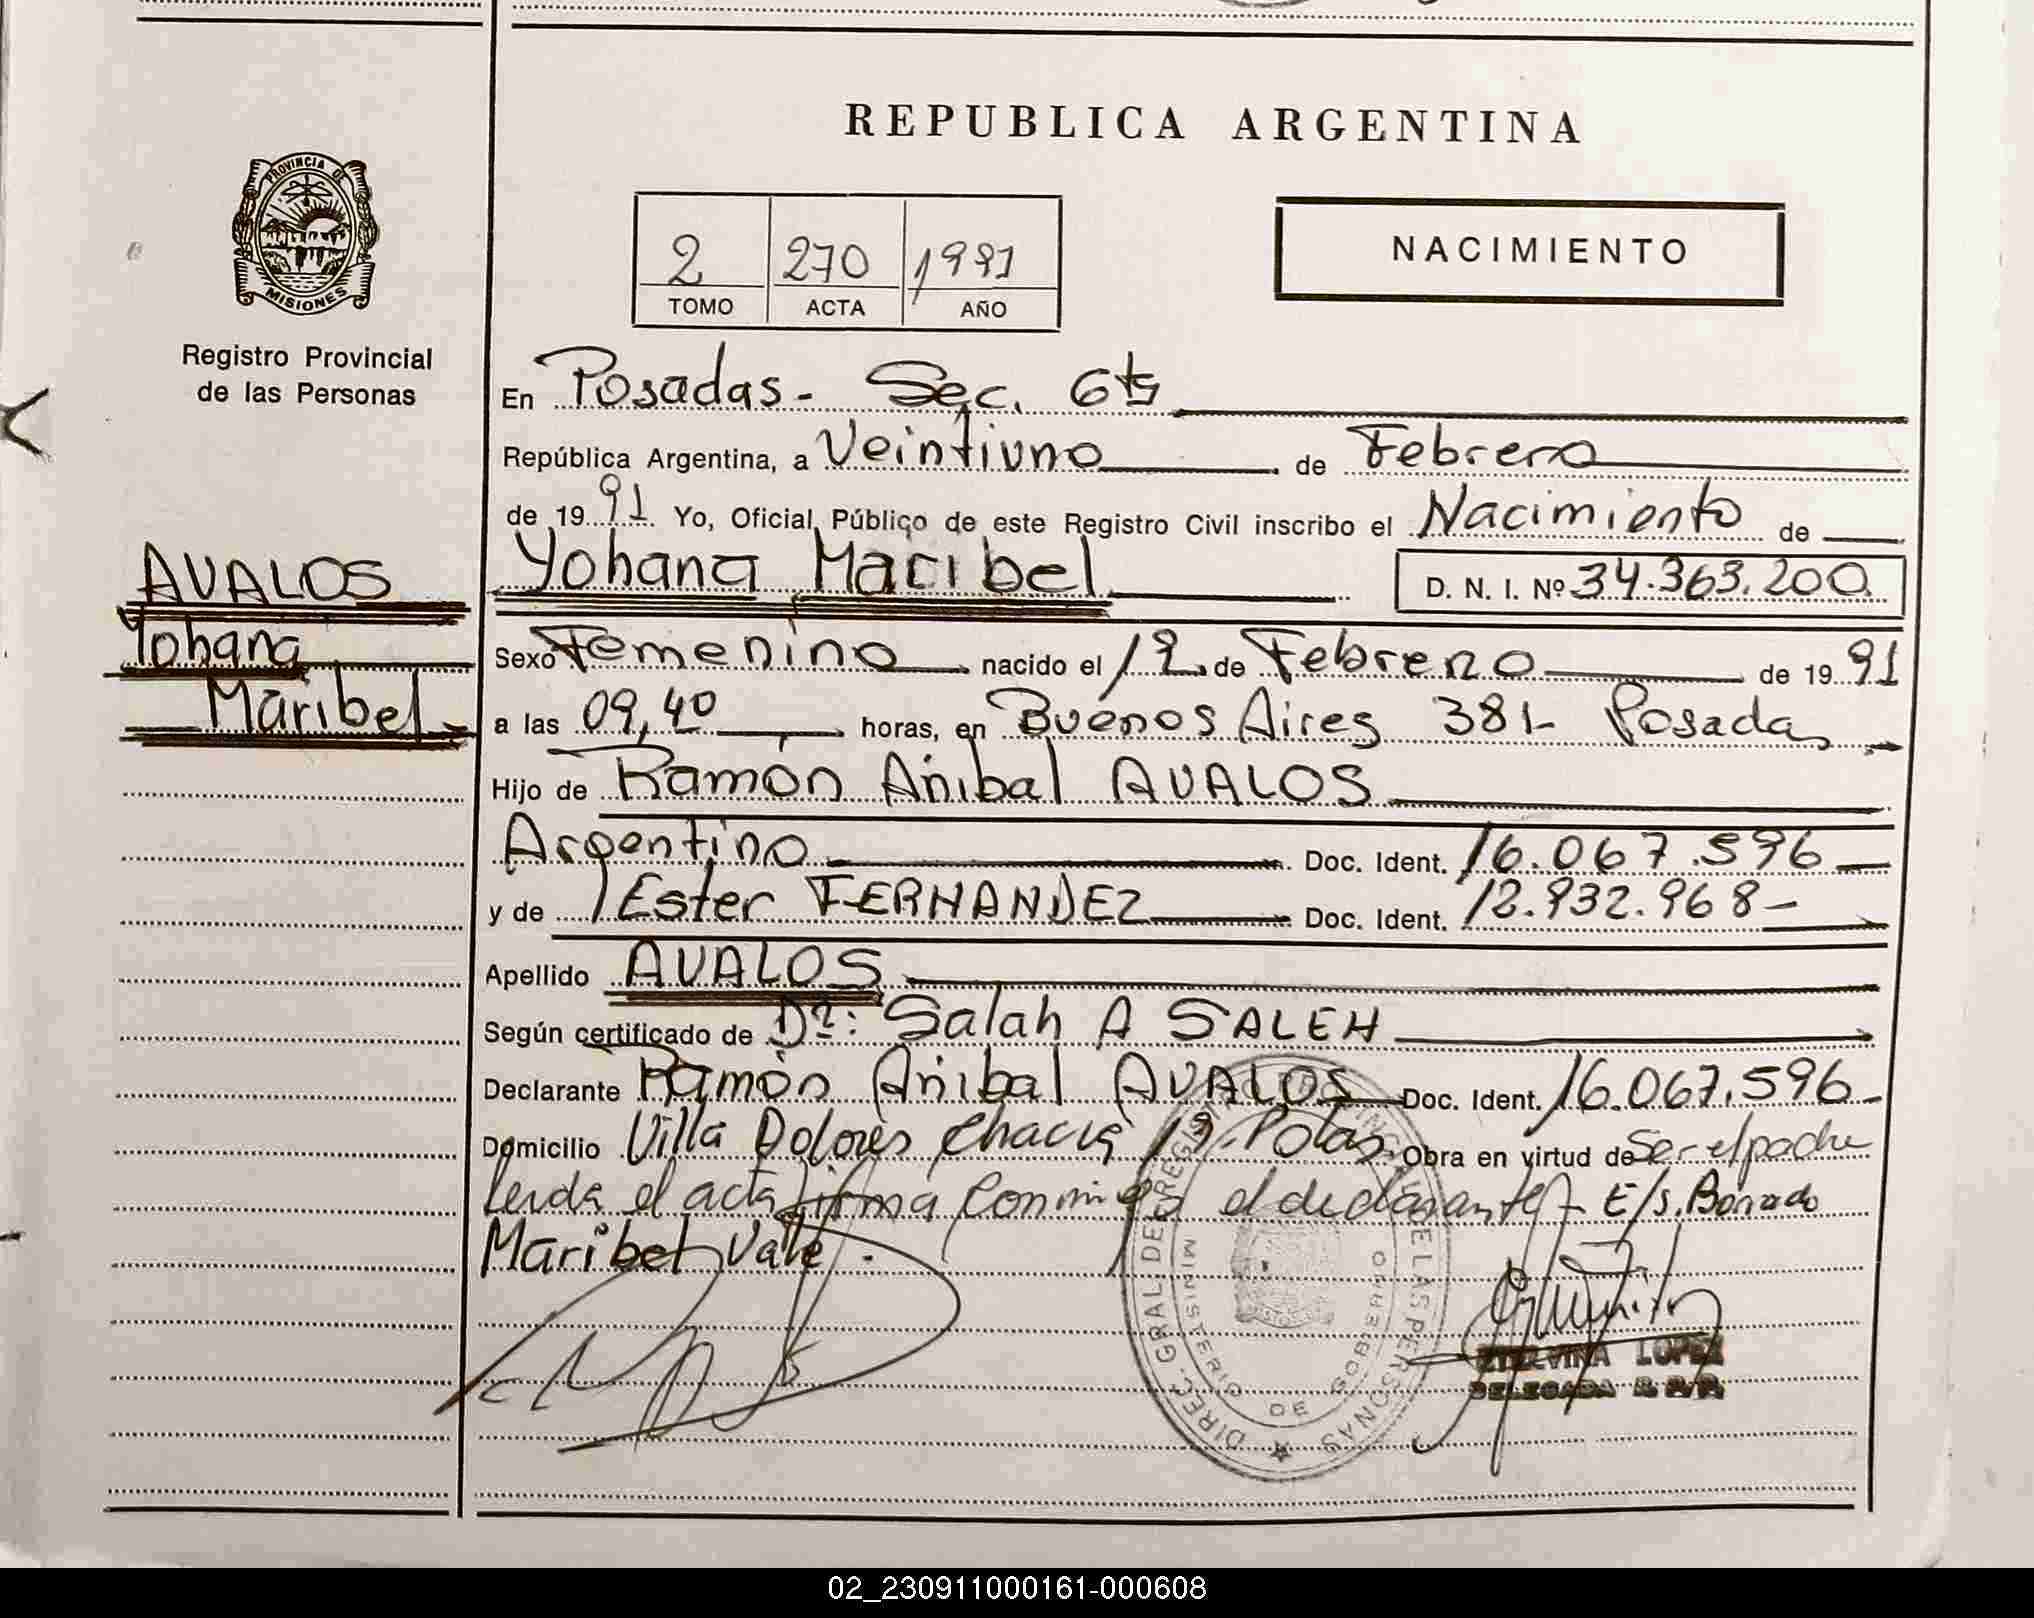 REPUBLICA ARGENTINA
PROVINCIA DE MISIONES
Registro Provincial
de las Personas
2 270 1991
TOMO ACTA AÑO
NACIMIENTO
En Posadas - Sec. 6ta
República Argentina, a Veintiuno de Febrero
de 1991 Yo, Oficial Público de este Registro Civil inscribo el Nacimiento de
AVALOS
Yohana
Maribel
Yohana Maribel D. N. I. Nº 34.363.200
Sexo Femenino nacido el 12 de Febrero de 1991
a las 09,40 horas, en Buenos Aires 381 - Posadas
Hijo de Ramón Anibal AVALOS
Argentino Doc. Ident. 16.067.596
y de Ester FERNANDEZ Doc. Ident. 12.932.968-
Apellido AVALOS
Según certificado de Dr: Salah A SALEH
Declarante Ramón Anibal AVALOS Doc. Ident. 16.067.596
Domicilio Villa Dolores Chacra Obra en virtud de Ser el padre
Leida el acta firma conmigo el declarante - E/s. Borrado
Maribel Vale.
DIREC. GRAL DE REGISTRO PROVINCIAL DE LAS PERSONAS
MINISTERIO DE GOBIERNO
ETELVINA LOPEZ
DELEGADA R.P.P.
02_230911000161-000608